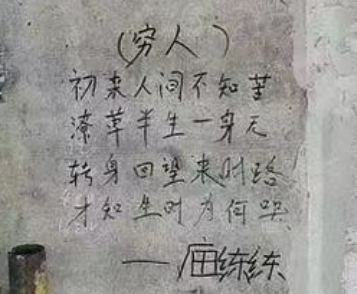 (穷人)
初来人间不知苦
潦草半生一身无
转身回望来时路
才知生时为何哭